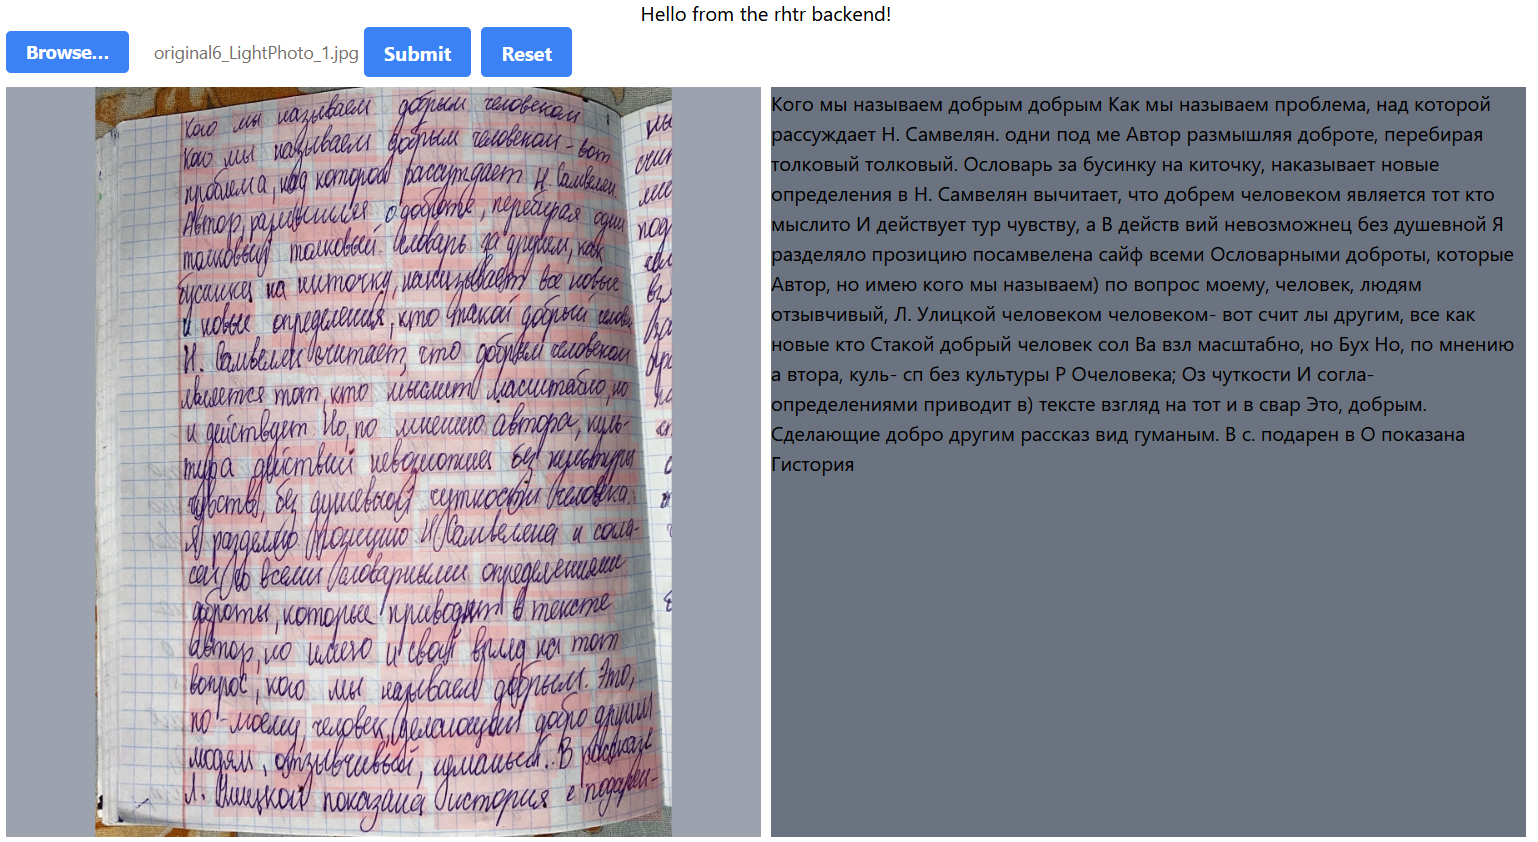 Hello from the rhtr backend!
Browse... original6_LightPhoto_1.jpg Submit Reset
Кого мы называем добрым человеком
Кого мы называем добрым человеком - вот
проблема, над которой рассуждает Н. Самвелян
Автор, размышляя о доброте, перебирая один
толковый толковый. словарь за другим, как
бусинку на ниточку, нанизывает все новые
и новые определения, кто такой добрый человек
Н. Самвелян считает, что добрым человеком
является тот, кто мыслит масштабно, но
и действует. Но, по мнению автора, куль-
тура действий невозможна без культуры
чувств, без душевной чуткости человека.
Я разделяю позицию Н Самвеляна и согла-
сен со всеми словарными определениями
доброты, которые приводит в тексте
автор, но имею и свой взгляд на тот
вопрос, кого мы называем добрым. Это,
по-моему, человек, делающий добро другим
людям, отзывчивый, гуманный. В рассказе
Л. Улицкой показана история с подарен-
Кого мы называем добрым добрым Как мы называем проблема, над которой
рассуждает Н. Самвелян. одни под ме Автор размышляя доброте, перебирая
толковый толковый. Ословарь за бусинку на киточку, наказывает новые
определения в Н. Самвелян вычитает, что добрем человеком является тот кто
мыслито И действует тур чувству, а В действ вий невозможнец без душевной Я
разделяло прозицию посамвелена сайф всеми Ословарными доброты, которые
Автор, но имею кого мы называем) по вопрос моему, человек, людям
отзывчивый, Л. Улицкой человеком человеком- вот счит лы другим, все как
новые кто Стакой добрый человек сол Ва взл масштабно, но Бух Но, по мнению
а втора, куль- сп без культуры Р Очеловека; Оз чуткости И согла-
определениями приводит в) тексте взгляд на тот и в свар Это, добрым.
Сделающие добро другим рассказ вид гуманым. В с. подарен в О показана
Гистория